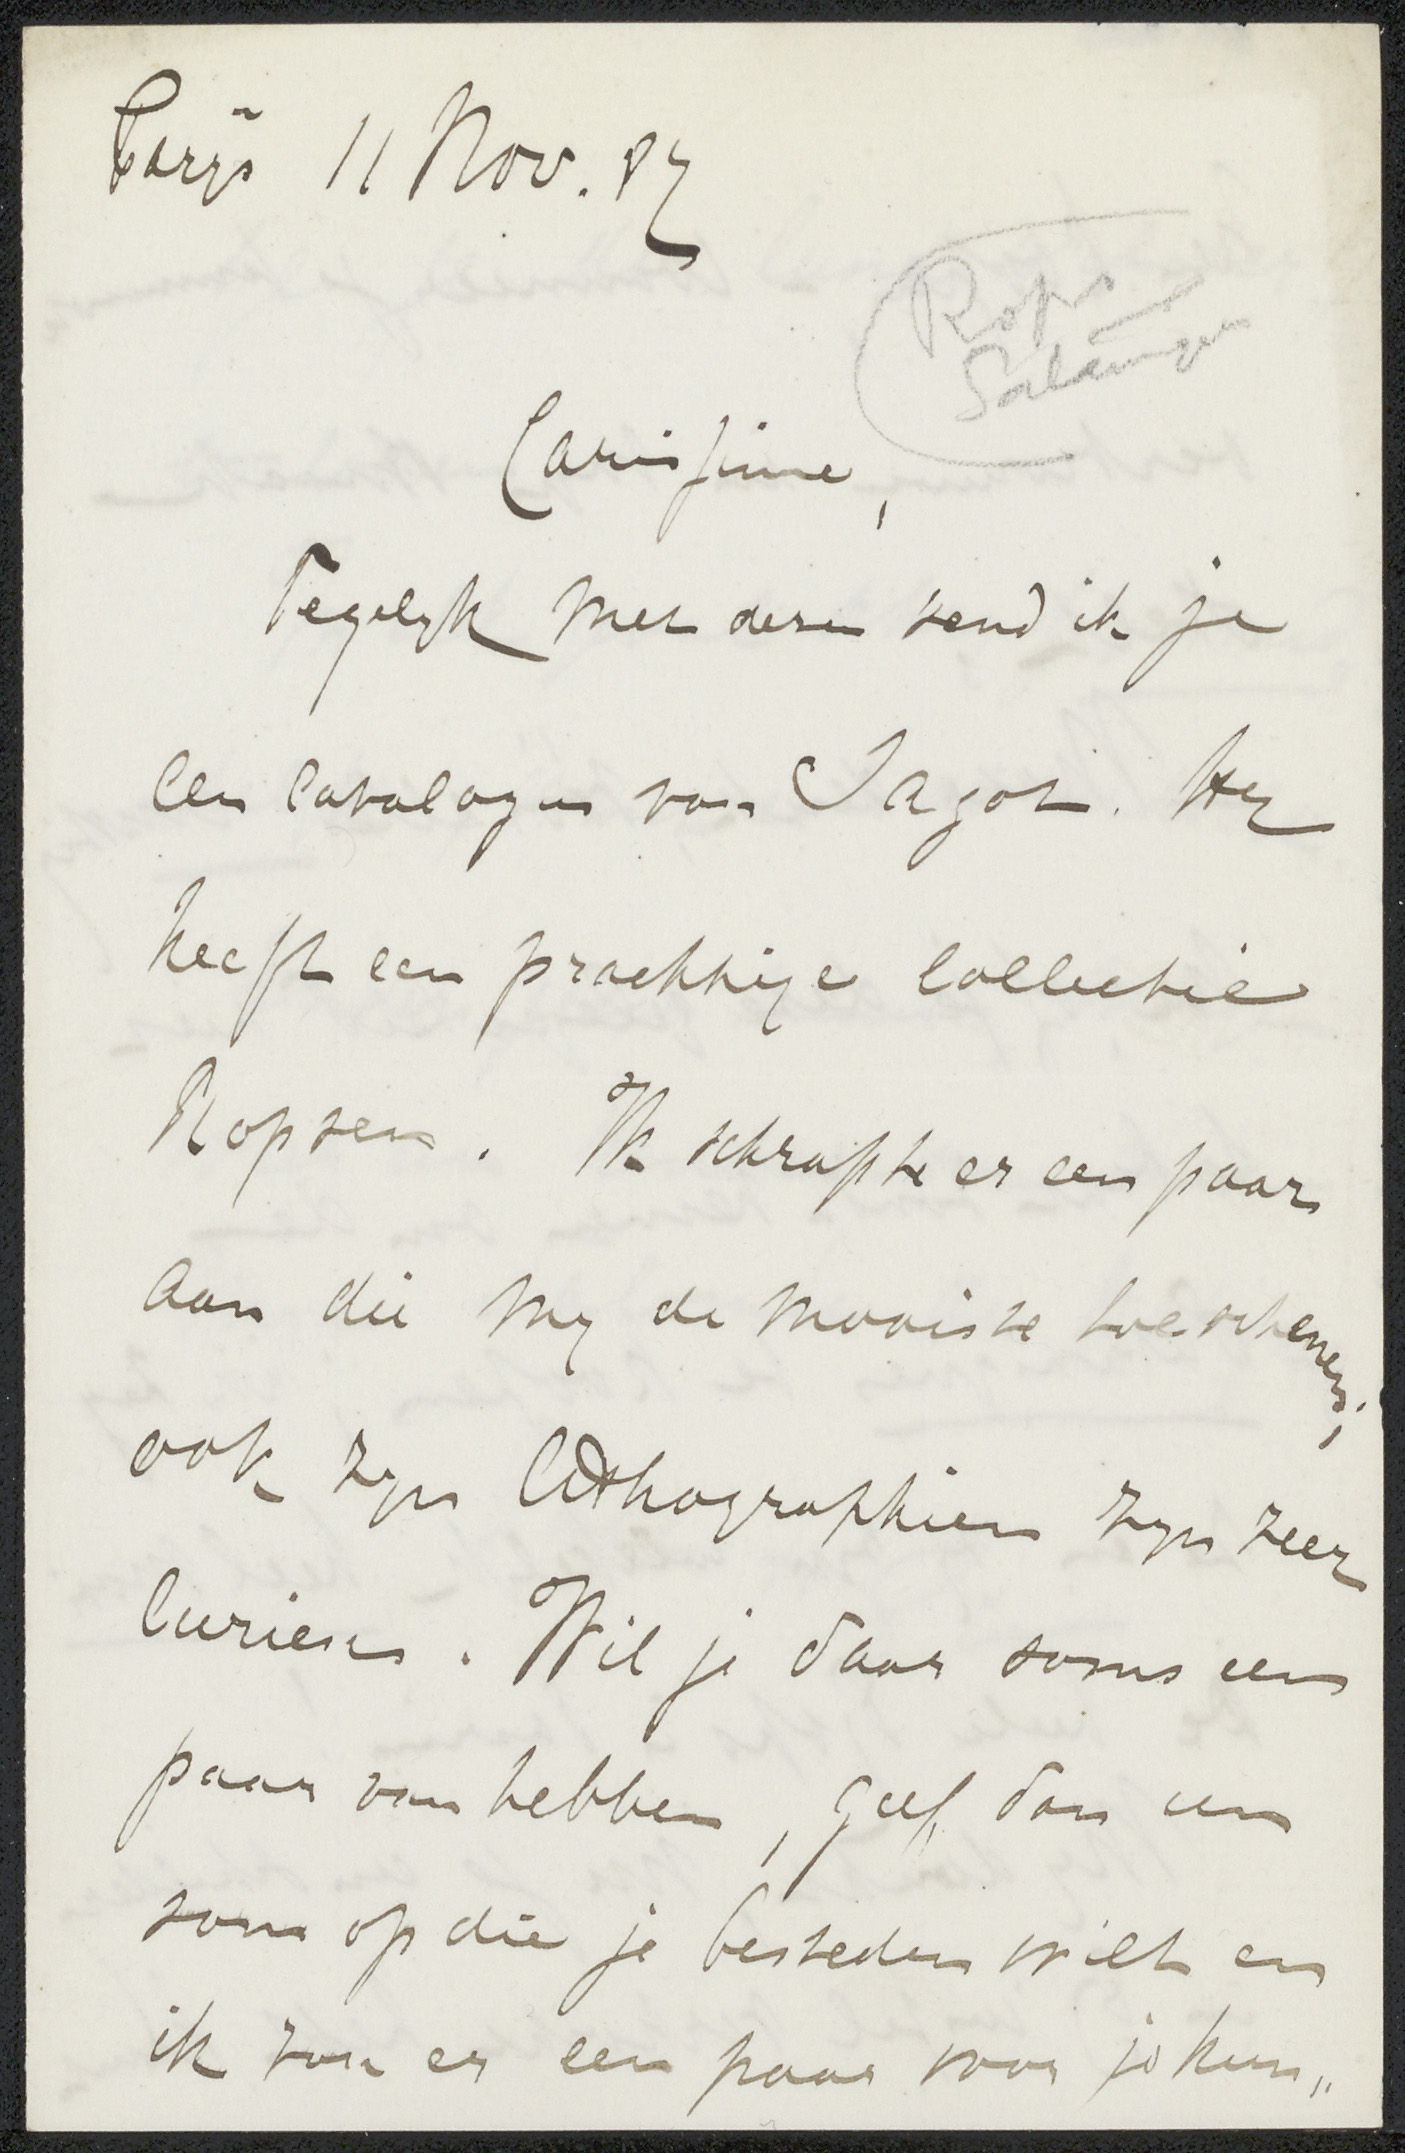 Parijs 11 Nov. 87
Rops
Carissime,
Tegelyk met dezen zend ik je
een catalogus van Sagot. Hy
heeft een prachtige collectie
Ropsen. Ik schrapte er een paar
aan die my de mooiste toeschenen;
ook zyn lithographien zyn zeer
curieus. Wil je daar soms een
paar van hebben, geef dan een
som op die je besteden wilt en
ik zou er een paar voor je kun„